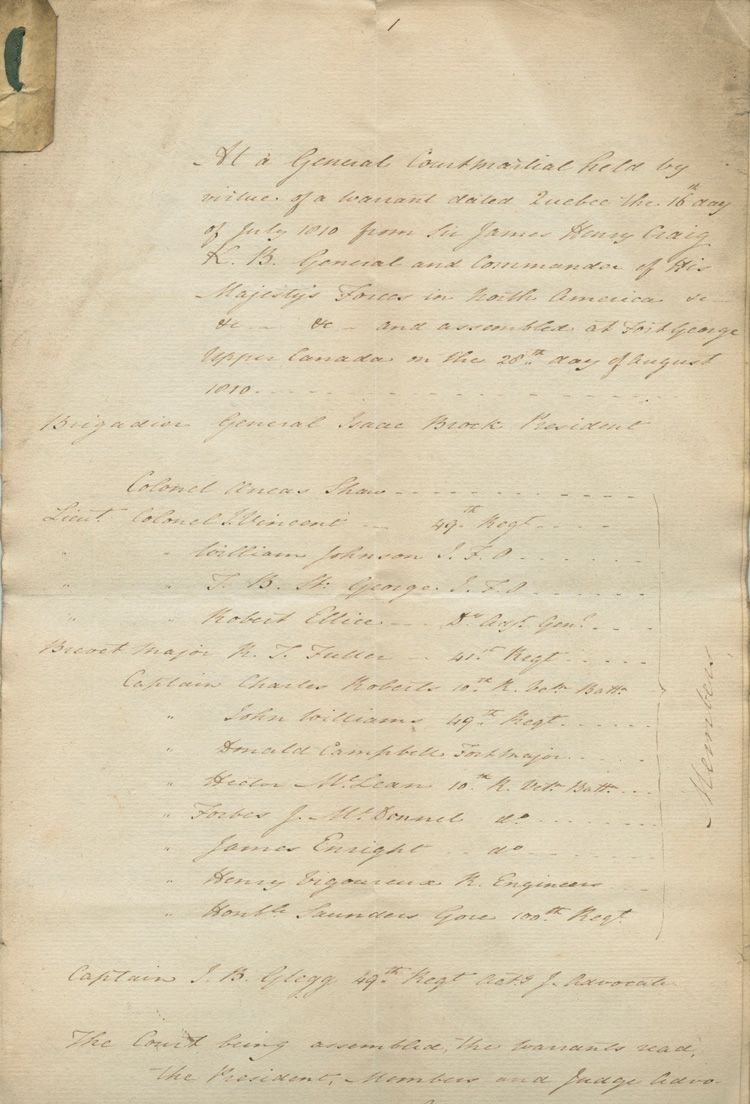 1
At a General Courtmartial held by
virtue of a warrant dated Quebec the 16th day
of July 1810 from Sir James Henry Craig
K. B. General and Commander of His
Majesty's Forces in North America &c
&c &c and assembled at Fort George
Upper Canada on the 28th day of August
1810
Brigadier General Isaac Brock President
Colonel Aneas Shaw
Lieut. Colonel J. Vincent 49th Regt
" " William Johnson I. F. O
" " T. B. St. George I. F. O
" " Robert Ellice Dy Adjt Genl.
Brevet Major R. T. Fuller 41st Regt
Captain Charles Roberts 10th R. Vetn Battn
" John Williams 49th Regt.
" Donald Campbell Fort Major
" Hector McLean 10th R. Vetn Battn
" Forbes J. McDonnel do
" James Enright do
" Henry Vigoureux R. Engineers
" Honble Saunders Gore 100th Regt.
Members
Captain J. B. Glegg 49th Regt Actg J. Advocate
The Court being assembled, the warrants read,
the President, Members and Judge Advo-